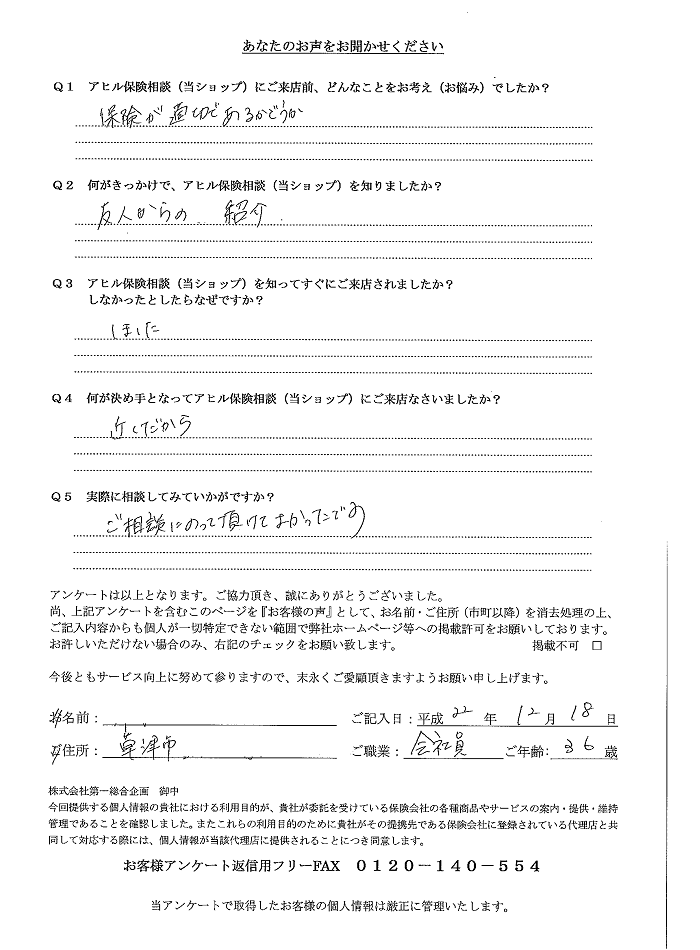 あなたのお声をお聞かせください
Q1 アヒル保険相談（当ショップ）にご来店前、どんなことをお考え（お悩み）でしたか？
保険が適切であるかどうか
Q2 何がきっかけで、アヒル保険相談（当ショップ）を知りましたか？
友人からの 紹介
Q3 アヒル保険相談（当ショップ）を知ってすぐにご来店されましたか？
しなかったとしたらなぜですか？
しました
Q4 何が決め手となってアヒル保険相談（当ショップ）にご来店なさいましたか？
近くだから
Q5 実際に相談してみていかがですか？
ご相談にのって頂けてよかったです
アンケートは以上となります。ご協力頂き、誠にありがとうございました。
尚、上記アンケートを含むこのページを『お客様の声』として、お名前・ご住所（市町以降）を消去処理の上、
ご記入内容からも個人が一切特定できない範囲で弊社ホームページ等への掲載許可をお願いしております。
お許しいただけない場合のみ、右記のチェックをお願い致します。 掲載不可 □
今後ともサービス向上に努めて参りますので、末永くご愛顧頂きますようお願い申し上げます。
お名前： ご記入日：平成 22 年 12 月 18 日
ご住所： 草津市 ご職業： 会社員 ご年齢： 36 歳
株式会社第一総合企画 御中
今回提供する個人情報の貴社における利用目的が、貴社が委託を受けている保険会社の各種商品やサービスの案内・提供・維持
管理であることを確認しました。またこれらの利用目的のために貴社がその提携先である保険会社に登録されている代理店と共
同して対応する際には、個人情報が当該代理店に提供されることにつき同意します。
お客様アンケート返信用フリーFAX 0120－140－554
当アンケートで取得したお客様の個人情報は厳正に管理いたします。